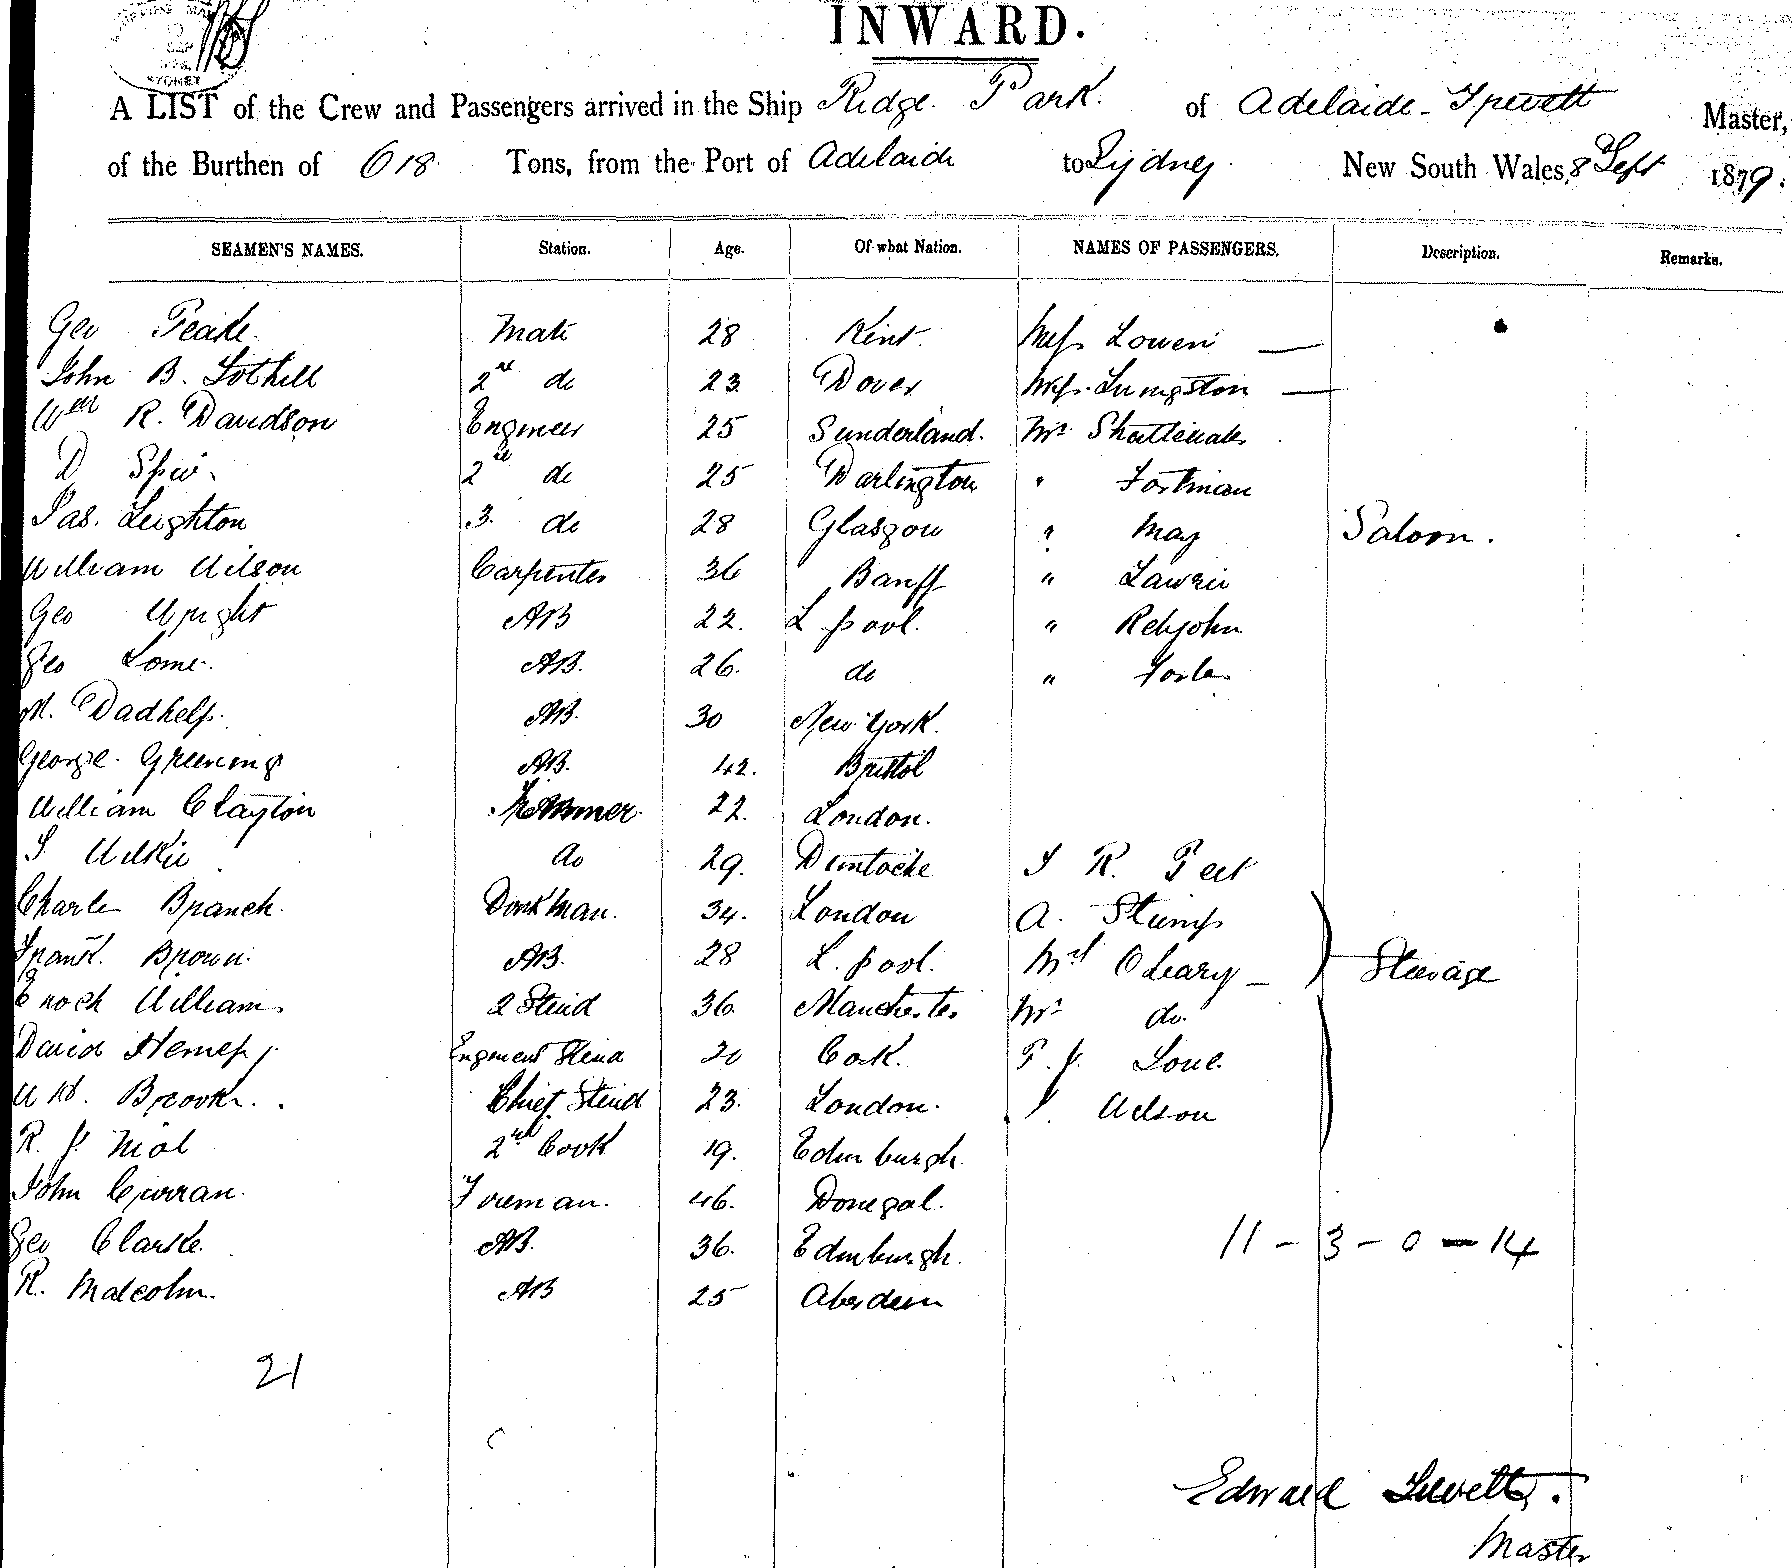 SYDNEY
INWARD.
A LIST of the Crew and Passengers arrived in the Ship Ridge Park. of Adelaide - Trevett Master,
of the Burthen of 618 Tons, from the Port of Adelaide to Sydney New South Wales, 8 Sept 1879.
SEAMEN'S NAMES. Station. Age. Of what Nation. NAMES OF PASSENGERS. Description. Remarks.
Geo Peake. Mate 28 Kent. Miss Lowen —
John B. Tothill 2nd do 23 Dover Miss Livingston —
Wm R. Davidson Engineer 25 Sunderland. Mr
D 2d do 25 Darlington " Fortman
Jas. Leighton 3. do 28 Glasgow " May Saloon.
William Wilson Carpenter 36 Banff " Lawrie
Geo Wright AB 22. L pool. " Rebjohn
Geo AB. 26. do "
M. AB. 30 New York.
George Greening AB. 42. Bristol
William Clayton 22. London.
J Wilkie do 29. J R. Peet
Charles Branch. Donkman. 34. London A. Stump
Frank. Brown. AB. 28 L. pool. Mrs O Leary — Steerage
Enoch Williams 2 Stewd 36. Manchester Mr do.
David Engineers Stewd 20 Cork. P. J. Love
Wm. Brooks. Chief Stewd 23. London. J. Wilson
R. J. Niol 2nd Cook 19. Edinburgh.
John Curran. Fireman. 46. Donegal.
Geo Clarke. AB. 36. Edinburgh. 11 - 3 - 0 - 14
R. Malcolm. AB 25 Aberdeen
21
Edward Trevett.
Master